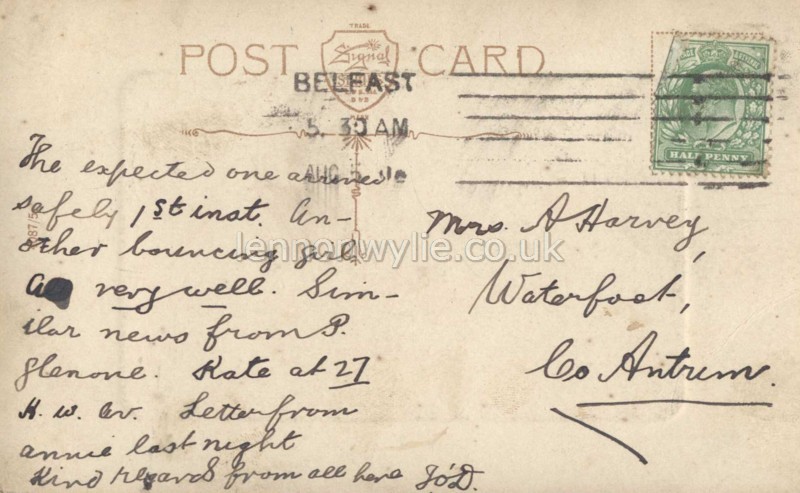 TRADE
Signal
POST CARD
BELFAST
5. 30 AM
AUG
HALF PENNY
The expected one arrived
safely 1st inst. An-
other bouncing girl.
All very well. Sim-
ilar news from P.
glenone. Kate at 27
K. W. Av. Letter from
annie last night
Kind regards from all here J.O'D.
Mrs. A Harvey,
Waterfoot,
Co Antrim.
lennonwylie.co.uk